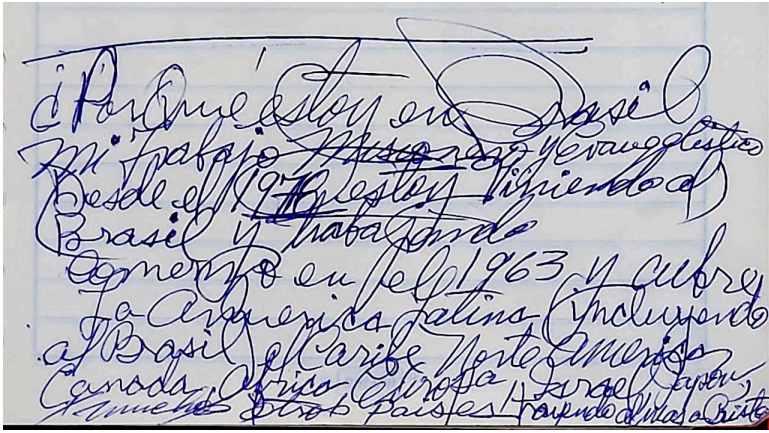 ¿Por Qué estoy en Brasil
mi trabajo Misionero y evangelistico
Desde el 1970 estoy viniendo al
Brasil y trabajando
Comenzo en el 1963 y cubre
La America Latina (incluyendo
al Brasil) el Caribe Norte America
Canada, Africa Europa, Israel, Japon,
y muchos otros paises trayendo almas a Cristo